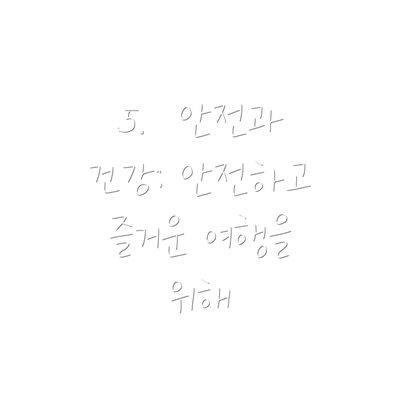 5. 안전과
건강: 안전하고
즐거운 여행을
위해